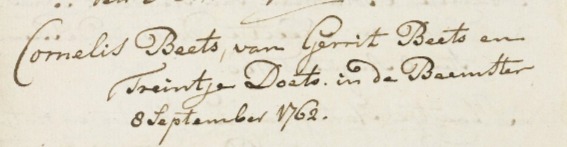 Cornelis Beets, van Gerrit Beets en
Treintje Doets. in de Beemster
8 September 1762.